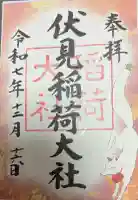 奉拝
伏見稲荷大社
令和七年十二月十六日
稲荷
大社